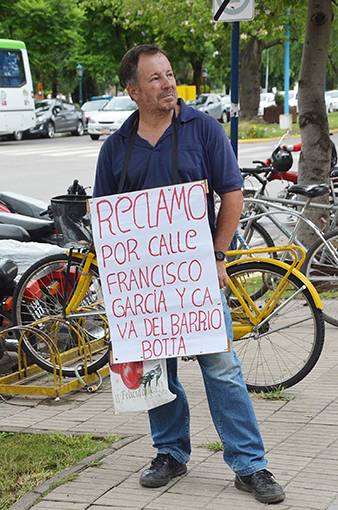 RECLAMO
POR CALLE
FRANCISCO
GARCÍA Y CA
VA DEL BARRIO
BOTTA